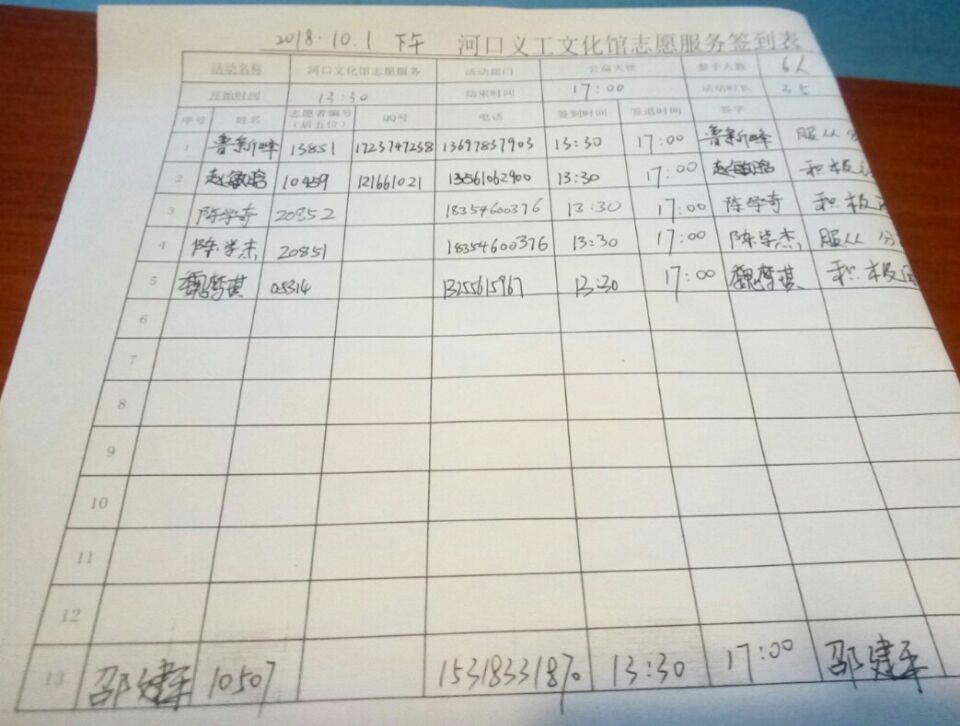 2018.10.1 下午 河口义工文化馆志愿服务签到表
活动名称 河口文化馆志愿服务 活动部门 公益大使 参于人数 6人
开始时间 13:30 结束时间 17:00 活动时长 3.5
序号 姓名 志愿者编号（后五位） QQ号 电话 签到时间 签退时间 签字
1 鲁新峰 13851 1723747238 13697837903 13:30 17:00 鲁新峰 服从
2 赵敏晗 10459 121661021 13561062900 13:30 17:00 赵敏晗 积极
3 陈学奇 20852 18354600376 13:30 17:00 陈学奇 积极
4 陈学杰 20851 18354600376 13:30 17:00 陈学杰 服从 分
5 魏梦琪 05314 13255615967 13:30 17:00 魏梦琪 积极
6
7
8
9
10
11
12
13 邵建平 10507 15318331870 13:30 17:00 邵建平